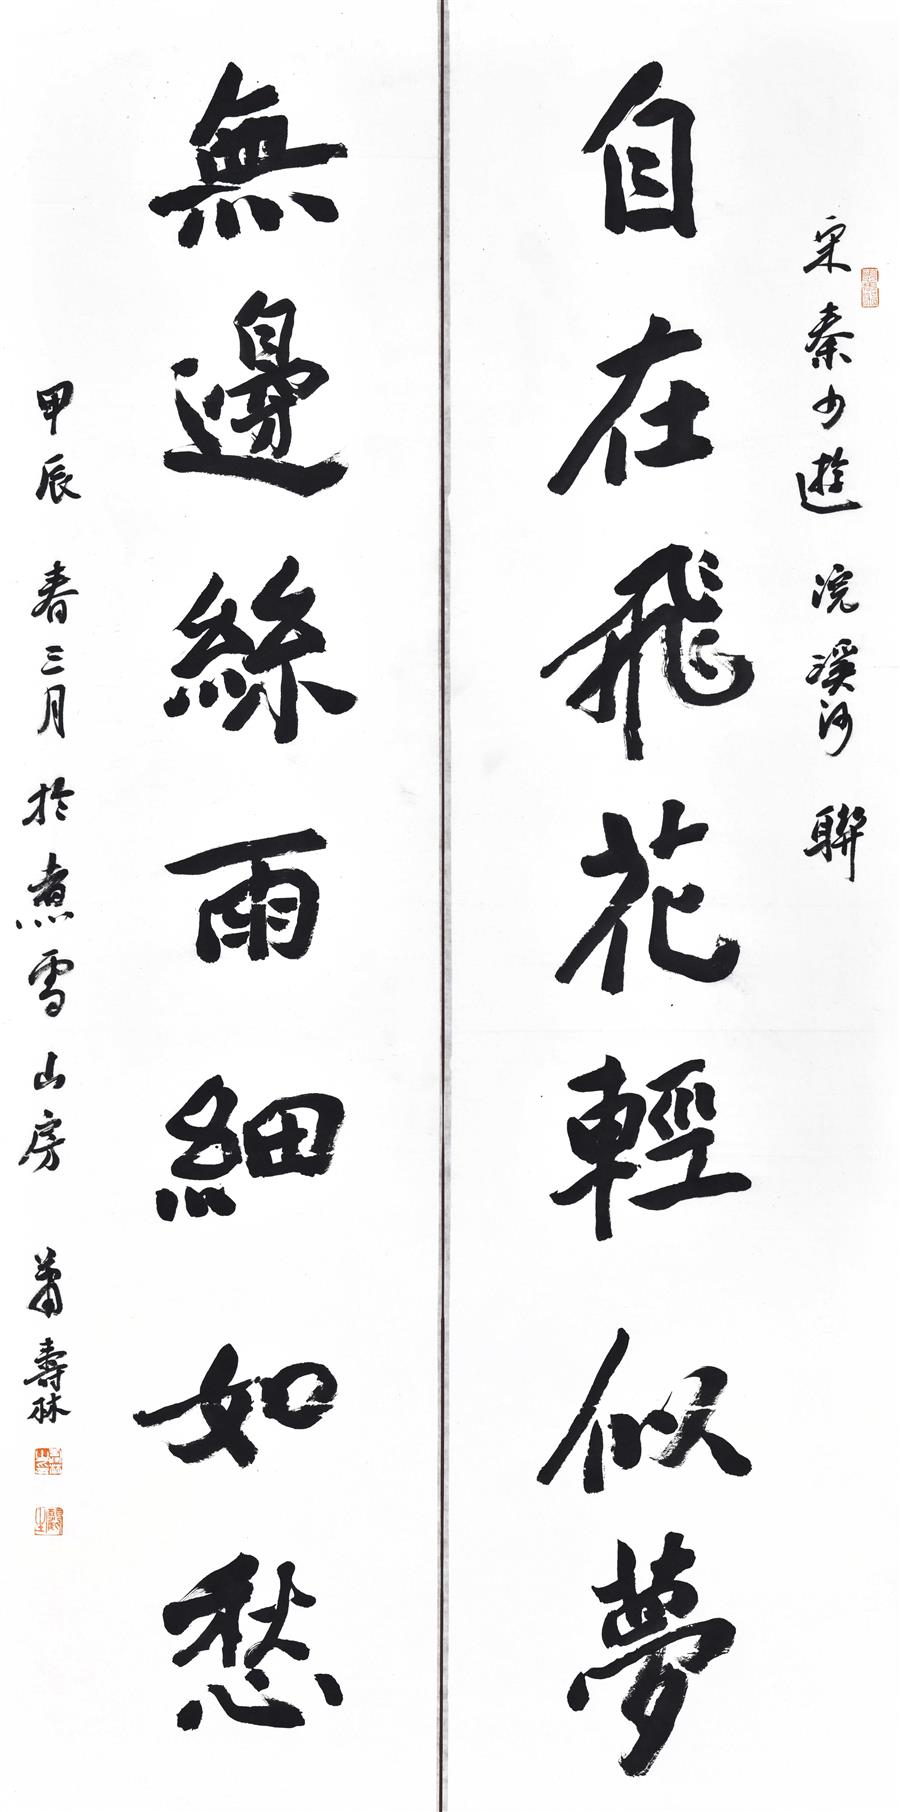 宋秦少游浣溪沙聯
自在飛花輕似夢
無邊絲雨細如愁
甲辰春三月於煮雪山房蕭壽林